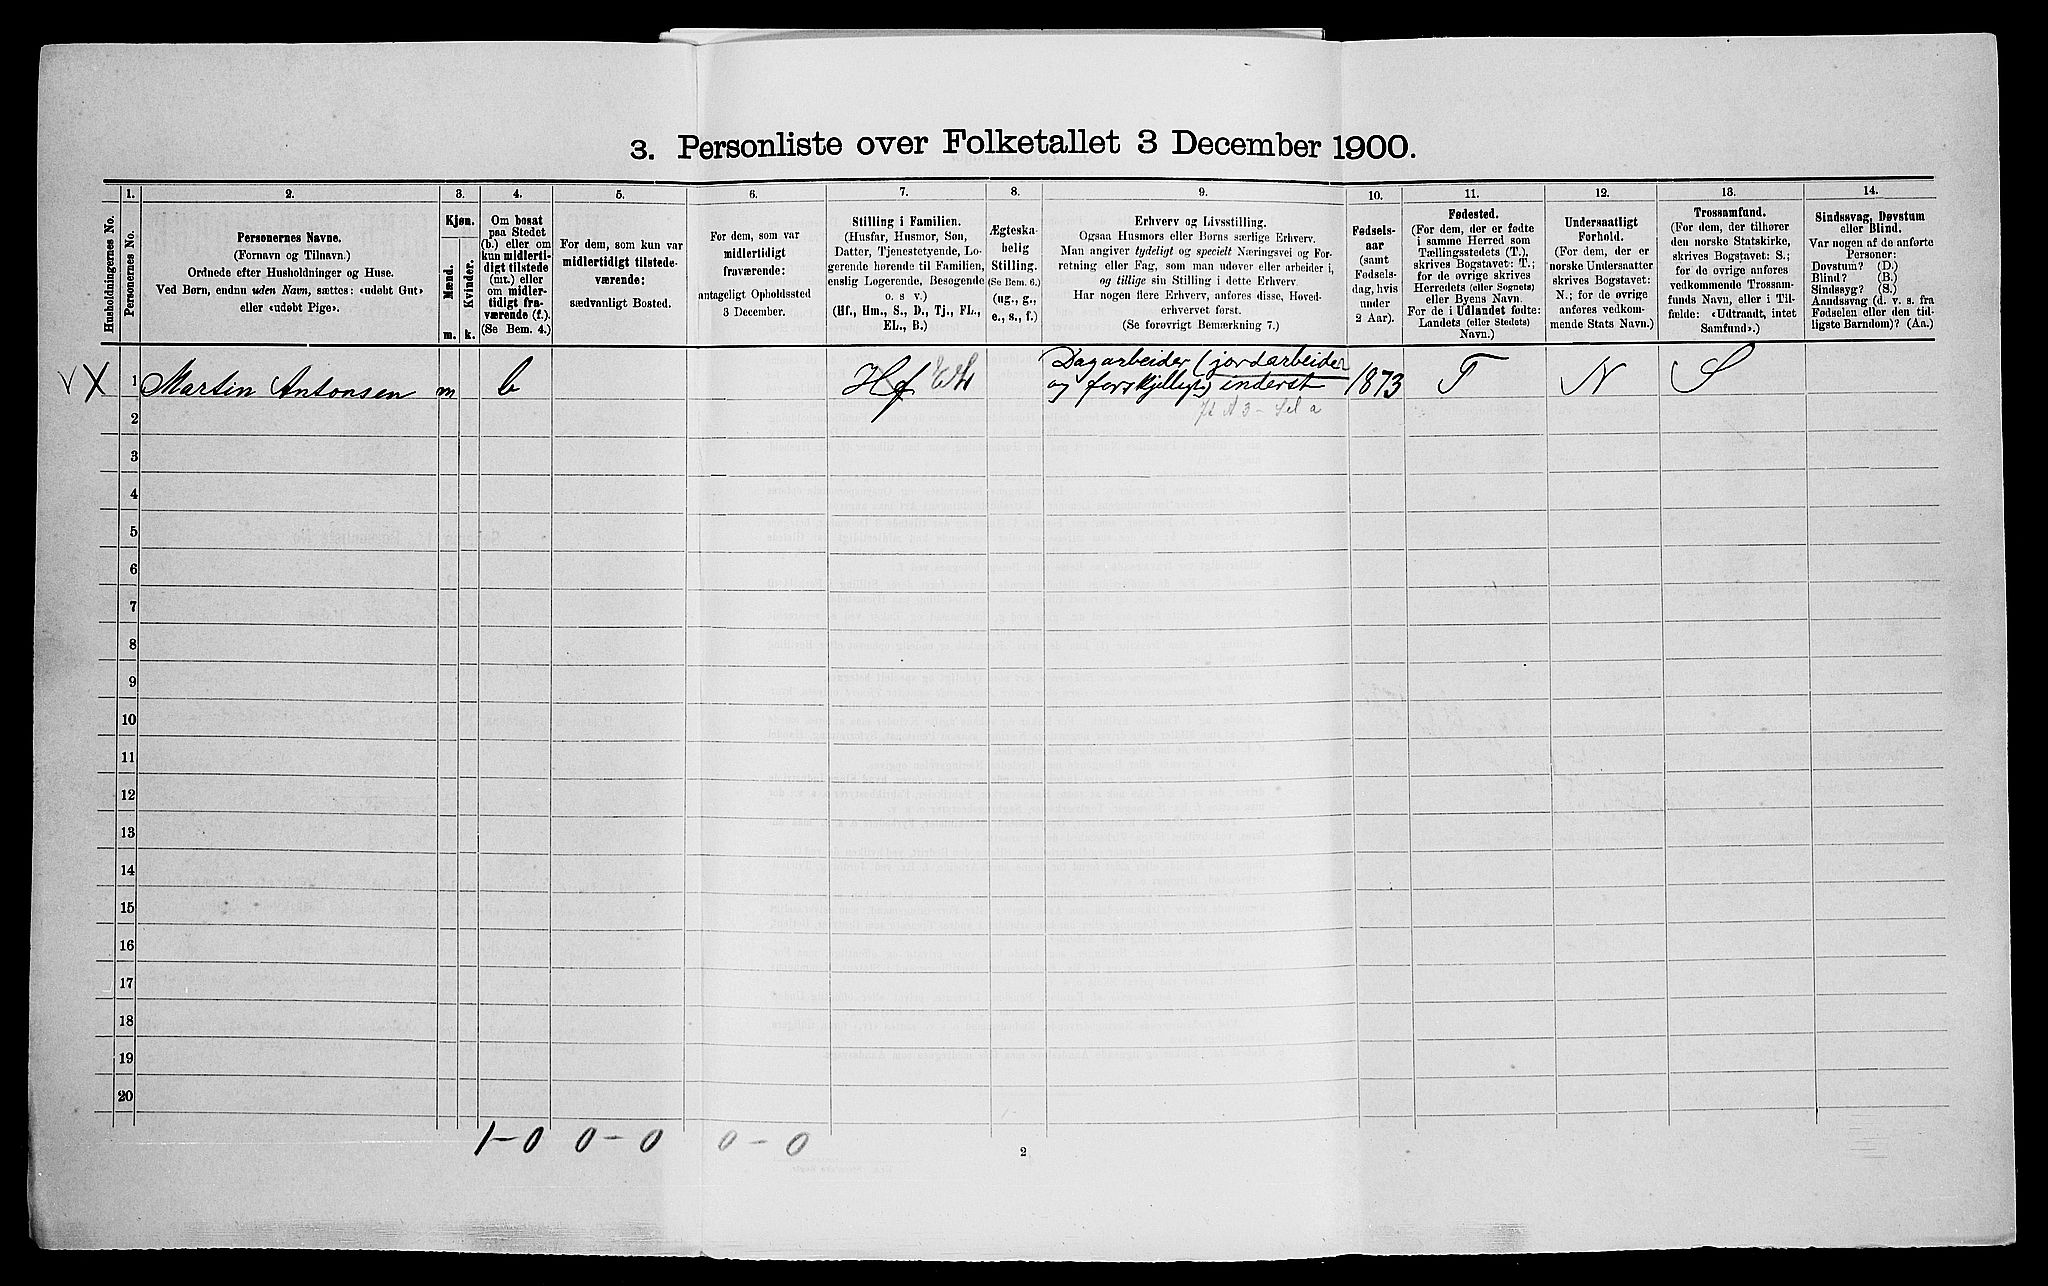 3. Personliste over Folketallet 3 December 1900.
1. 2. 3. 4. 5. 6. 7. 8. 9. 10. 11. 12. 13. 14.
Husholdningernes No.
Personernes No.
Personernes Navne.
(Fornavn og Tilnavn.)
Ordnede efter Husholdninger og Huse.
Ved Børn, endnu uden Navn, sættes: «udøbt Gut»
eller «udøbt Pige».
Kjøn.
Mænd.
Kvinder.
m. k.
Om bosat
paa Stedet
(b.) eller om
kun midlerti-
digt tilstede
(mt.) eller
om midler-
tidigt fra-
værende (f.).
(Se Bem. 4.)
For dem, som kun var
midlertidigt tilstede-
værende:
sædvanligt Bosted.
For dem, som var
midlertidigt
fraværende:
antageligt Opholdssted
3 December.
Stilling i Familien.
(Husfar, Husmor, Søn,
Datter, Tjenestetyende, Lo-
gerende hørende til Familien,
enslig Logerende, Besøgende
o. s v.)
(Hf., Hm., S., D., Tj., FL.,
EL., B.)
Ægteska-
belig
Stilling.
(Se Bem. 6.)
(ug., g.,
e., s., f.)
Erhverv og Livsstilling.
Ogsaa Husmors eller Børns særlige Erhverv.
Man angiver tydeligt og specielt Næringsvei og For-
retning eller Fag, som man udøver eller arbeider i,
og tillige sin Stilling i dette Erhverv.
Har nogen flere Erhverv, anføres disse, Hoved-
erhvervet først.
(Se forøvrigt Bemærkning 7.)
Fødsels-
aar
(samt
Fødsels-
dag, hvis
under
2 Aar).
Fødested.
(For dem, der er fødte
i samme Herred som
Tællingsstedets (T.),
skrives Bogstavet: T.;
for de øvrige skrives
Herredets (eller Sognets)
eller Byens Navn.
For de i Udlandet fødte:
Landets (eller Stedets)
Navn.)
Undersaatligt
Forhold.
(For dem, der er
norske Undersaatter
skrives Bogstavet:
N.; for de øvrige
anføres vedkom-
mende Stats Navn.)
Trossamfund.
(For dem, der tilhører
den norske Statskirke,
skrives Bogstavet: S.;
for de øvrige anføres
vedkommende Trossam-
funds Navn, eller i Til-
fælde: «Udtraadt, intet
Samfund».)
Sindssvag, Døvstum
eller Blind.
Var nogen af de anførte
Personer:
Døvstum? (D.)
Blind? (B.)
Sindssyg? (S.)
Aandssvag (d. v. s. fra
Fødselen eller den tid-
ligste Barndom)? (Aa.)
V X 1 Martin Antonsen m b Hf EL Dagarbeider (jordarbeider
og forskjelligt) inderst 1873 T N S
2
3
4
5
6
7
8
9
10
11
12
13
14
15
16
17
18
19
20
1-0 0-0 0-0
2